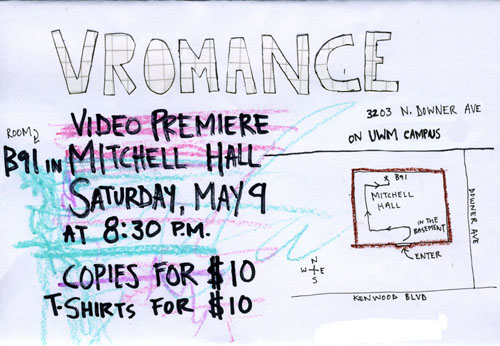 VROMANCE
VIDEO PREMIERE
ROOM
B91 IN MITCHELL HALL
SATURDAY, MAY 9
AT 8:30 P.M.
COPIES FOR $10
T-SHIRTS FOR $10
3203 N. DOWNER AVE
ON UWM CAMPUS
B91
MITCHELL
HALL
IN THE
BASEMENT
ENTER
DOWNER AVE
N
W E
S
KENWOOD BLVD